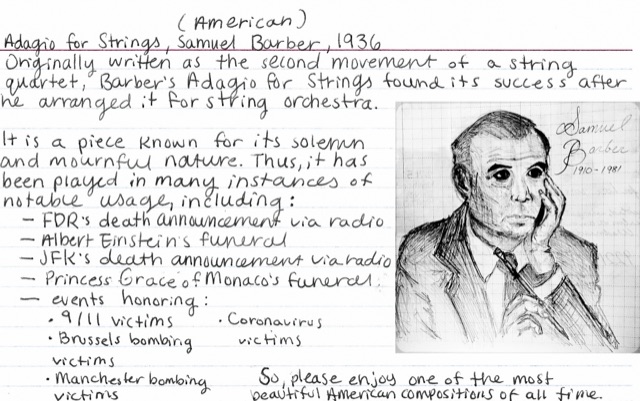 (American)
Adagio for Strings, Samuel Barber, 1936
Originally written as the second movement of a string
quartet, Barber's Adagio for Strings found its success after
he arranged it for string orchestra.
It is a piece known for its solemn
and mournful nature. Thus, it has
been played in many instances of
notable usage, including:
- FDR's death announcement via radio
- Albert Einstein's funeral
- JFK's death announcement via radio
- Princess Grace of Monaco's funeral
- events honoring:
• 9/11 victims
• Brussels bombing
victims
• Manchester bombing
victims
• Coronavirus
victims
Samuel
Barber
1910-1981
So, please enjoy one of the most
beautiful American compositions of all time.